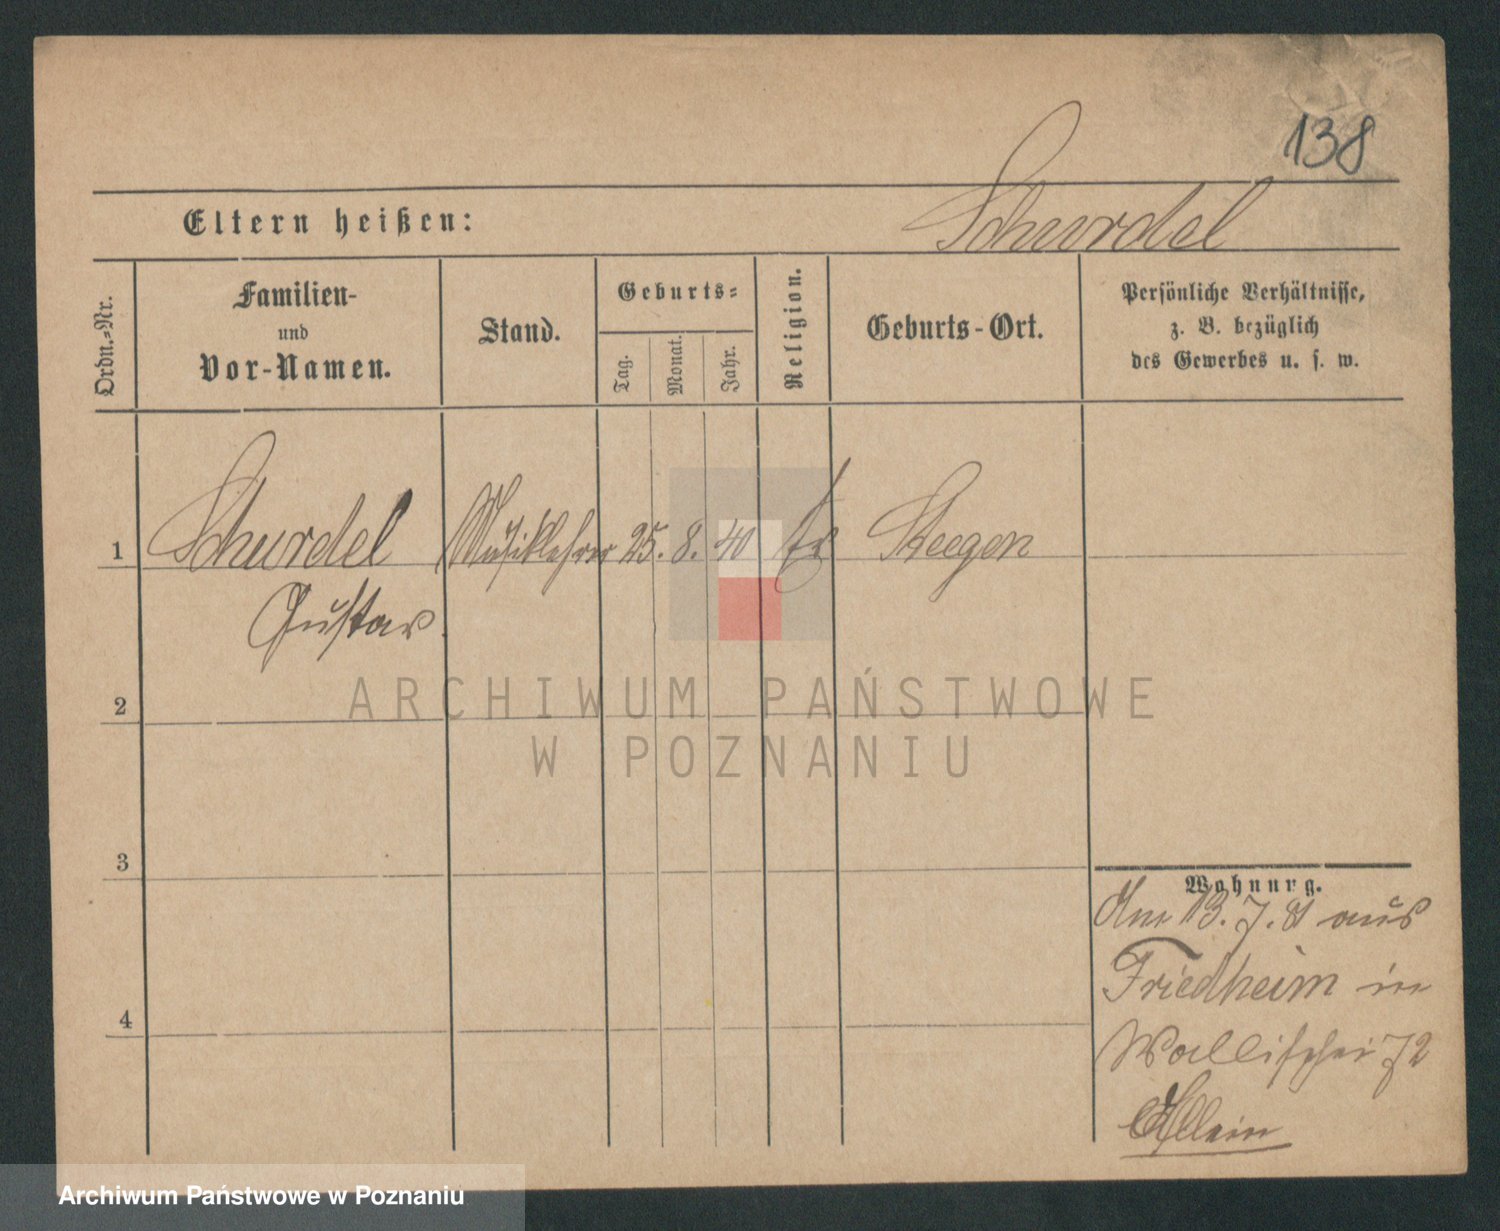 138
Eltern heißen: Schurdel
Ordn.-Nr.
Familien-
und
Vor-Namen.
Stand.
Geburts-
Tag.
Monat.
Jahr.
Religion.
Geburts-Ort.
Persönliche Verhältnisse,
z. B. bezüglich
des Gewerbes u. s. w.
1 Schurdel Musiklehrer 25. 8. 40 Steegen
Gustav
2
3
4
Wohnung.
Am 13. 7. 81 aus
Friedheim in
Wallischei 72
Allein
ARCHIWUM PAŃSTWOWE
W POZNANIU
Archiwum Państwowe w Poznaniu